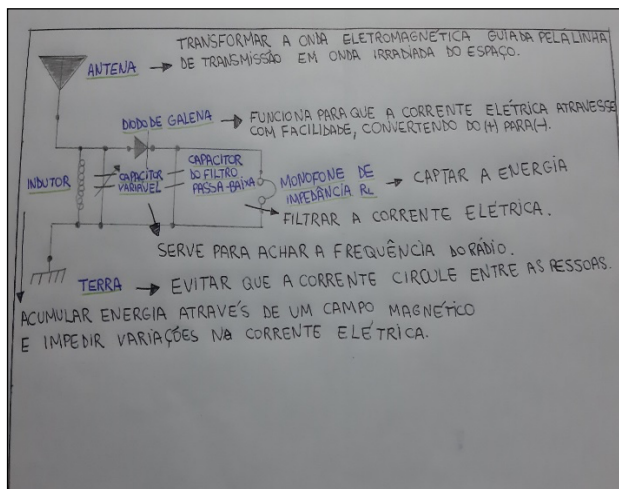 TRANSFORMAR A ONDA ELETROMAGNÉTICA GUIADA PELA LINHA
ANTENA → DE TRANSMISSÃO EM ONDA IRRADIADA DO ESPAÇO.
DIODO DE GALENA → FUNCIONA PARA QUE A CORRENTE ELÉTRICA ATRAVESSE
COM FACILIDADE, CONVERTENDO DO (+) PARA (-).
INDUTOR
CAPACITOR
VARIÁVEL
CAPACITOR
DO FILTRO
PASSA-BAIXA
MONOFONE DE
IMPEDÂNCIA RL → CAPTAR A ENERGIA
→ FILTRAR A CORRENTE ELÉTRICA.
SERVE PARA ACHAR A FREQUÊNCIA DO RÁDIO.
TERRA → EVITAR QUE A CORRENTE CIRCULE ENTRE AS PESSOAS.
ACUMULAR ENERGIA ATRAVÉS DE UM CAMPO MAGNÉTICO
E IMPEDIR VARIAÇÕES NA CORRENTE ELÉTRICA.